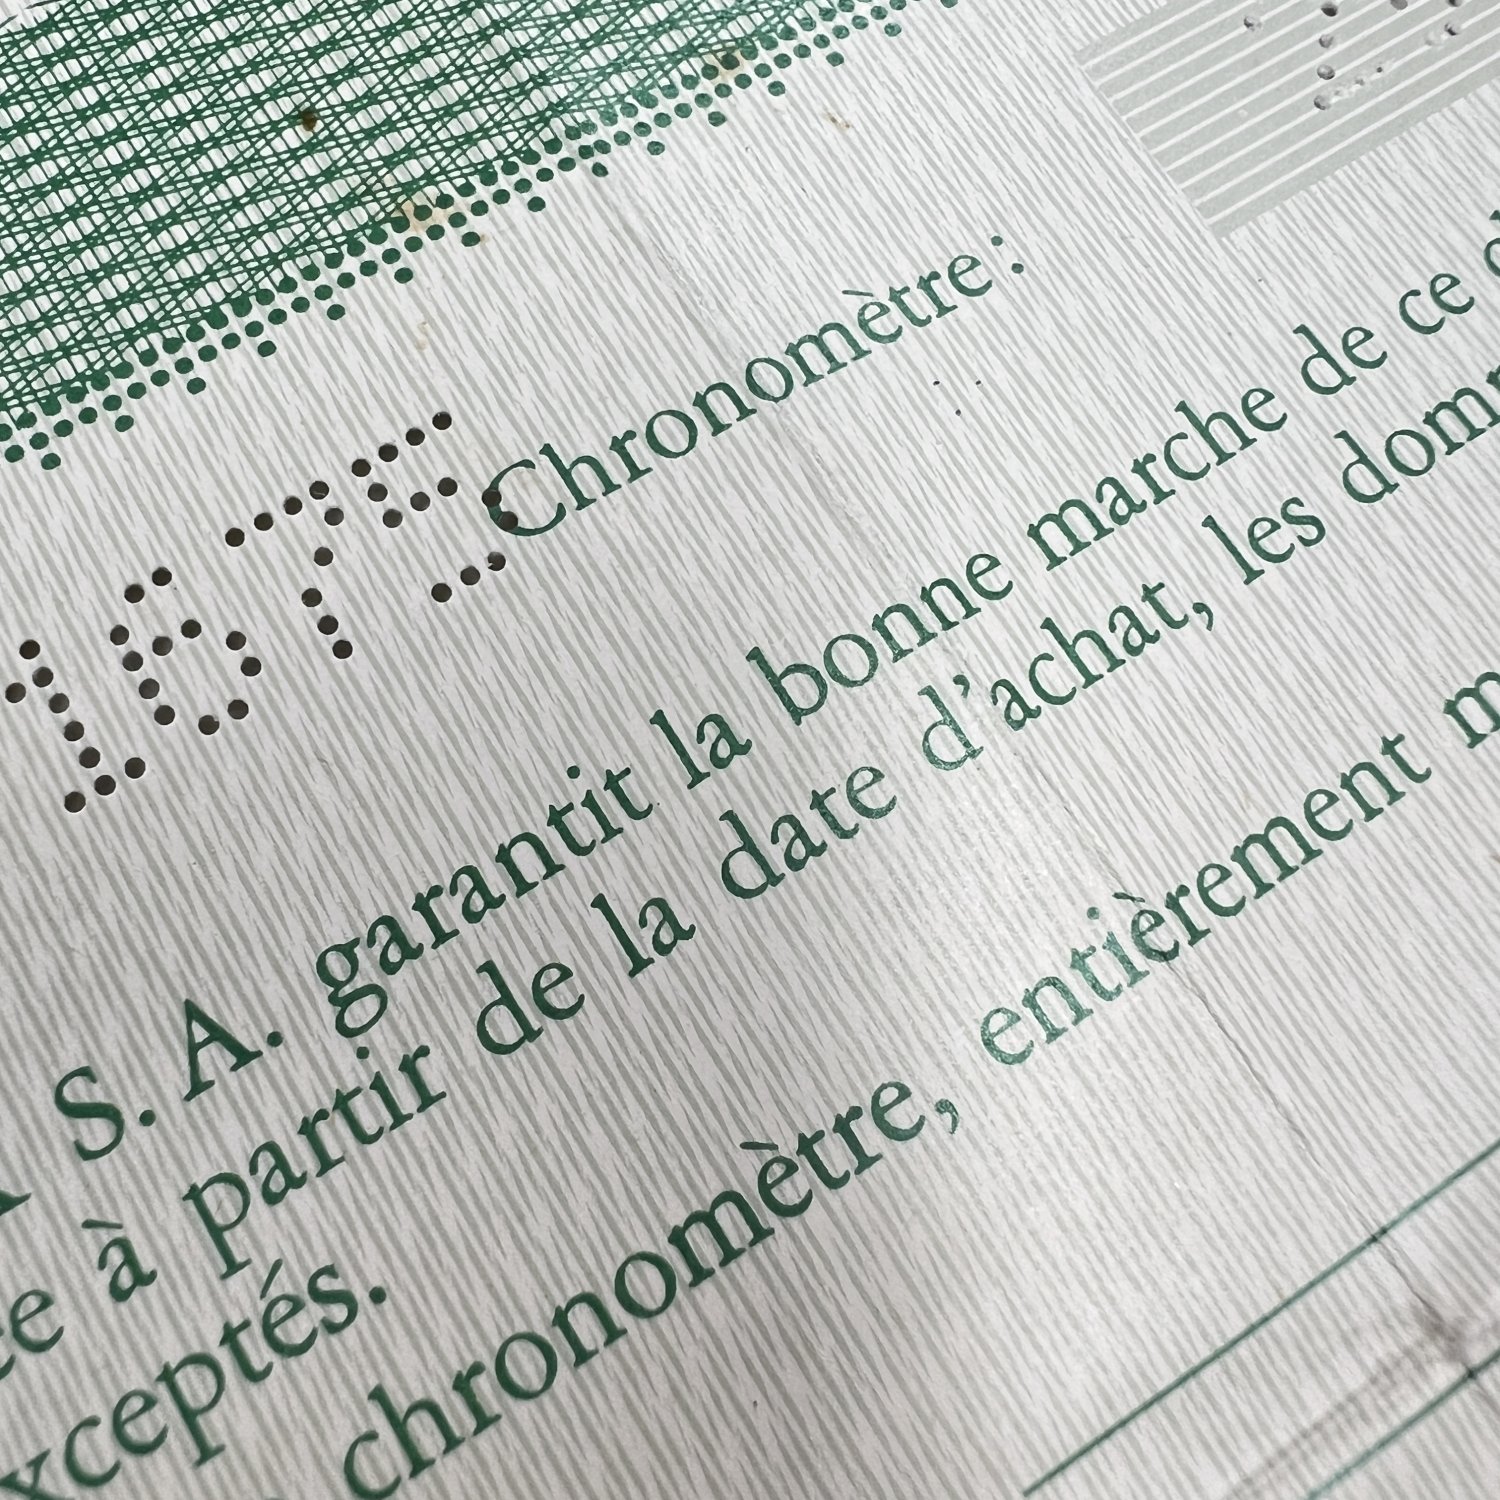 1675 Chronomètre :
S. A. garantit la bonne marche de ce
à partir de la date d'achat, les dom
xceptés.
chronomètre, entièrement m